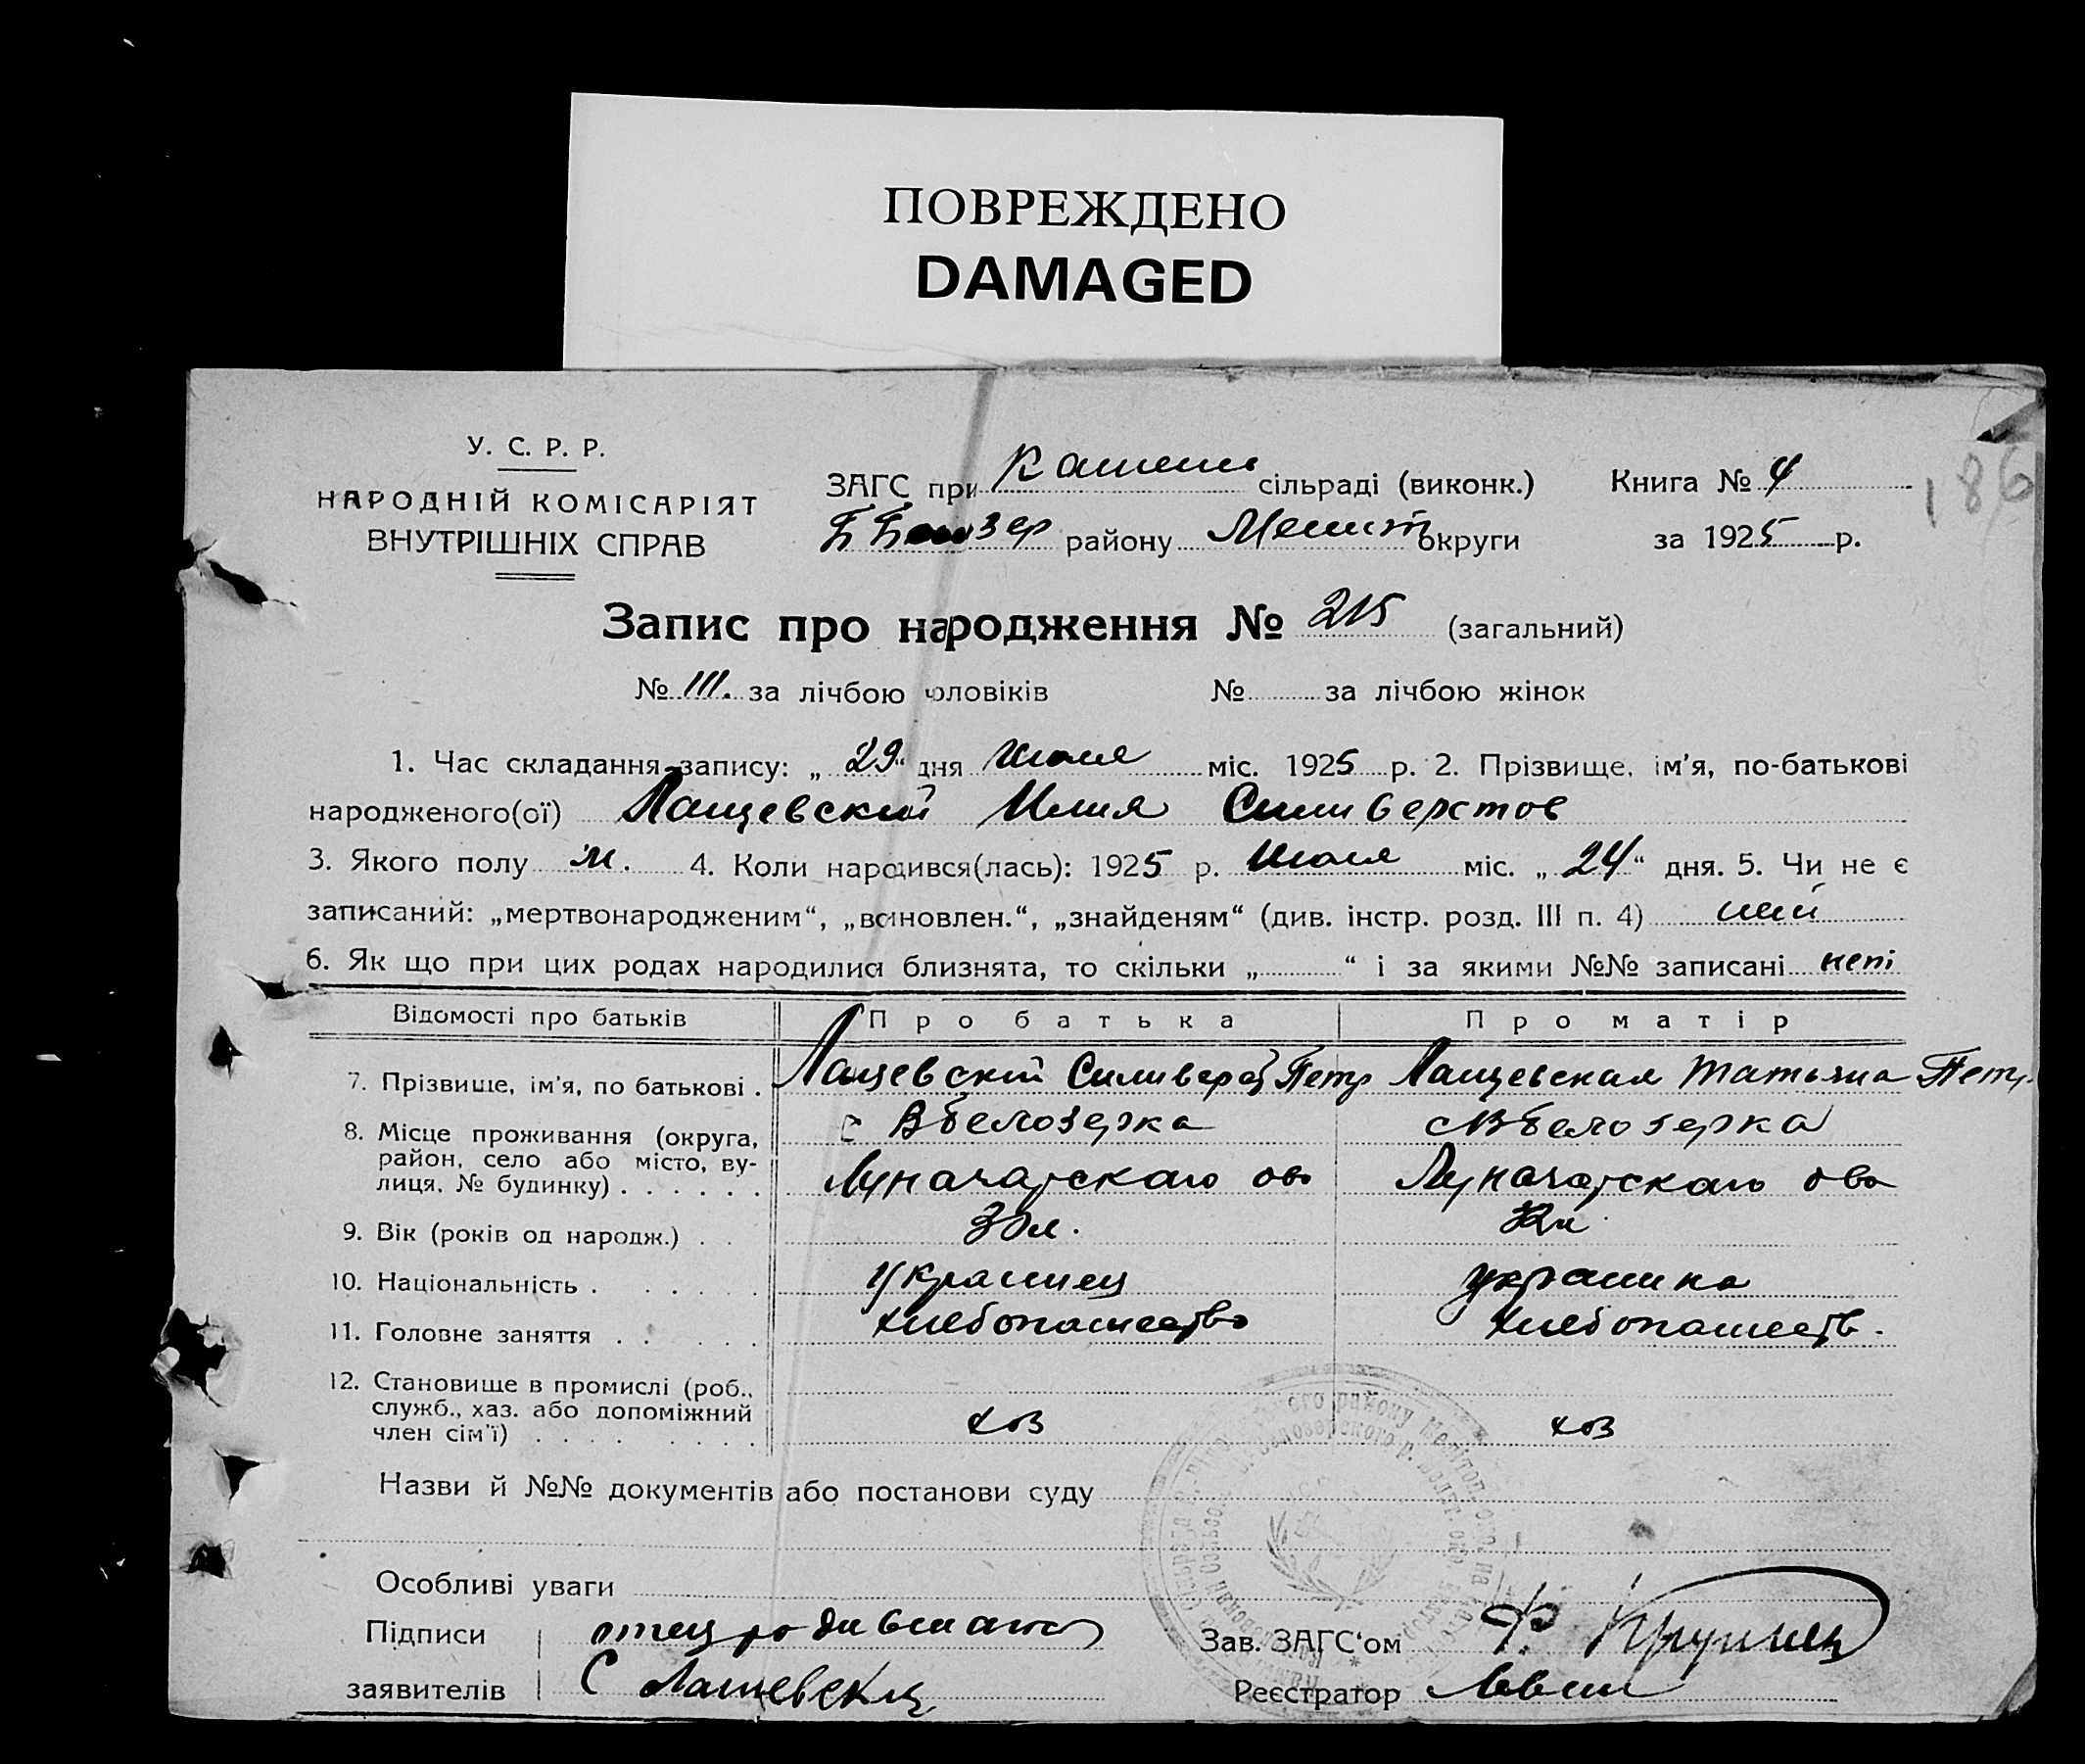 ПОВРЕЖДЕНО
DAMAGED
186
У. С. Р. Р.
НАРОДНІЙ КОМІСАРІЯТ
ВНУТРІШНІХ СПРАВ
ЗАГС при Камень сільраді (виконк.) Книга № 4
району Мелит округи за 1925 р.
Запис про народження № 215 (загальний)
№ 111. за лічбою чоловіків № за лічбою жінок
1. Час складання запису: „ 29 “ дня Июля міс. 1925 р. 2. Прізвище, ім'я, по-батькові
народженого(ої) Лащевский Илия Силиверстов
3. Якого полу м. 4. Коли народився(лась): 1925 р. Июля міс. „ 24 “ дня. 5. Чи не є
записаний: „мертвонародженим“, „всиновлен.“, „знайденям“ (див. інстр. розд. III п. 4)
6. Як що при цих родах народилися близнята, то скільки „ “ і за якими №№ записані нет
Відомості про батьків Про батька Про матір
7. Прізвище, ім'я, по батькові . Лащевский Силиверст Петр Лащевская Татьяна Петр.
8. Місце проживання (округа, с В белозерка с В белозерка
район, село або місто, ву-
лиця, № будинку) . . . . . . Луначарскаго Луначарскаго
9. Вік (років од народж.) . . 30 л.
10. Національність . . . . . украинец украинка
11. Головне заняття . . . . . хлебопашество хлебопашеств.
12. Становище в промислі (роб.,
служб., хаз. або допоміжний
член сім'ї) . . . . . . . . хоз хоз
Назви й №№ документів або постанови суду
Особливі уваги
Підписи отец родившагос Зав. ЗАГС‘ом
заявителів С Лащевский Реєстратор